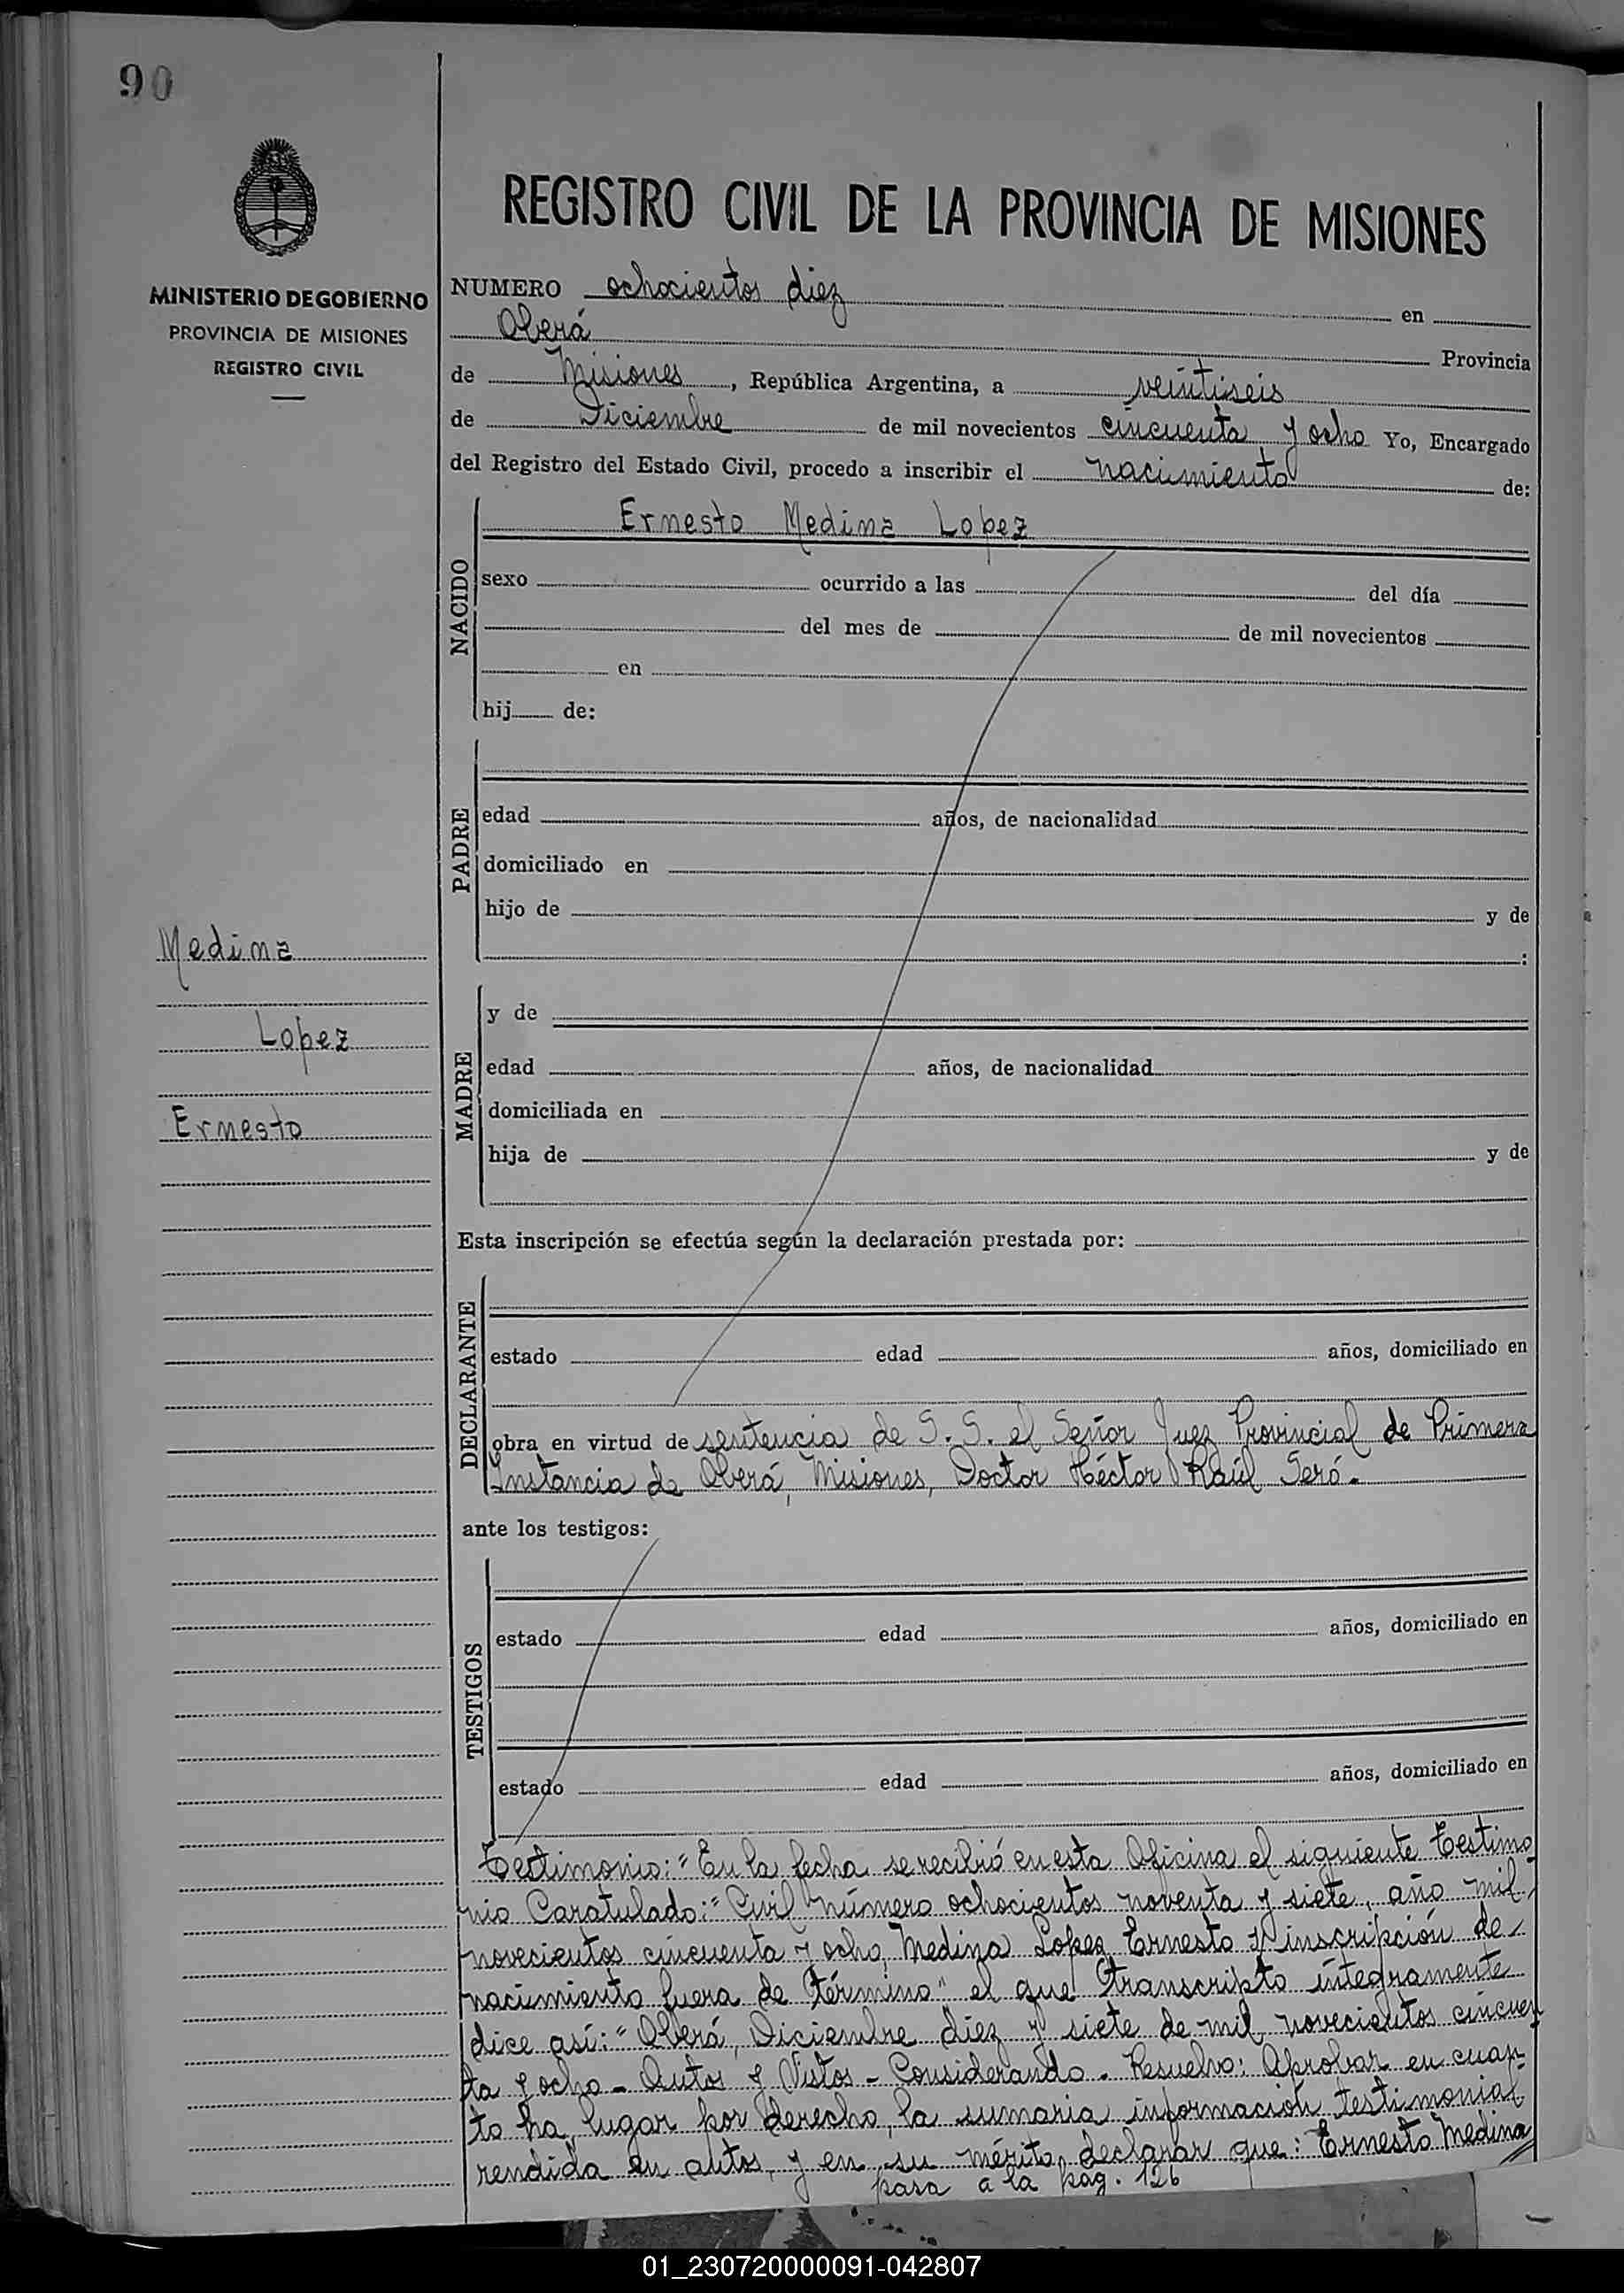 90
REGISTRO CIVIL DE LA PROVINCIA DE MISIONES
MINISTERIO DE GOBIERNO
PROVINCIA DE MISIONES
REGISTRO CIVIL
NUMERO ochocientos diez en
Oberá Provincia
de Misiones, República Argentina, a veintiseis
de Diciembre de mil novecientos cincuenta y ocho Yo, Encargado
del Registro del Estado Civil, procedo a inscribir el nacimiento de:
NACIDO
Ernesto Medina Lopez
sexo ocurrido a las del día
del mes de de mil novecientos
en
hij de:
PADRE
edad años, de nacionalidad
domiciliado en
hijo de y de
:
Medina
Lopez
Ernesto
MADRE
y de
edad años, de nacionalidad
domiciliada en
hija de y de
Esta inscripción se efectúa según la declaración prestada por:
DECLARANTE
estado edad años, domiciliado en
obra en virtud de sentencia de S. S. el Señor Juez Provincial de Primera
Instancia de Oberá, Misiones, Doctor Héctor Raúl Seró.-
ante los testigos:
TESTIGOS
estado edad años, domiciliado en
estado edad años, domiciliado en
Testimonio: "En la fecha se recibió en esta Oficina el siguiente Testimo
nio Caratulado: "Civil número ochocientos noventa y siete, año mil
novecientos cincuenta y ocho, Medina Lopez Ernesto s/ inscripción de
nacimiento fuera de término" el que transcripto íntegramente
dice así: "Oberá, Diciembre diez y siete de mil novecientos cincuen
ta y ocho - Autos y Vistos - Considerando - Resuelvo: Aprobar en cuan
to ha lugar por derecho, la sumaria información testimonial
rendida en autos, y en su mérito, declarar que: Ernesto Medina
pasa a la pág. 126
01_230720000091-042807